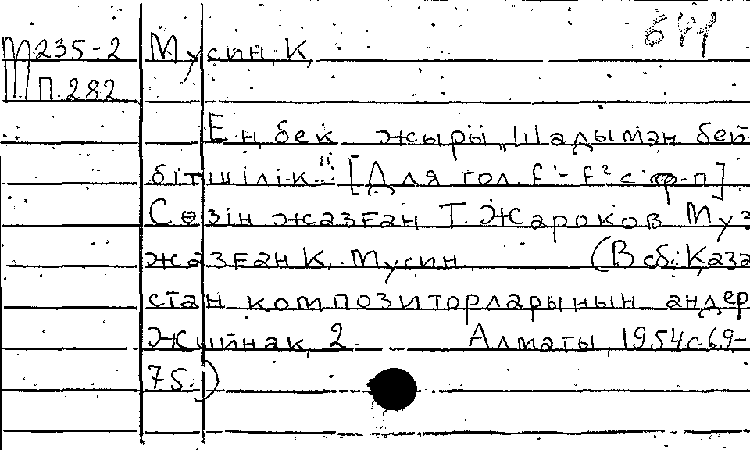 641
М235-2 Мусин, К.
П.282
Еңбек жыры „Шадыман бей
бітшілік". [Для гол. f'-f² с ф-п]
Сөзін жазған Т. Жароков Муз
жазған К. Мусин (В сб: Қаза
стан композиторларының андер
Жыйнақ 2 Алматы, 1954 с 69-
75.)